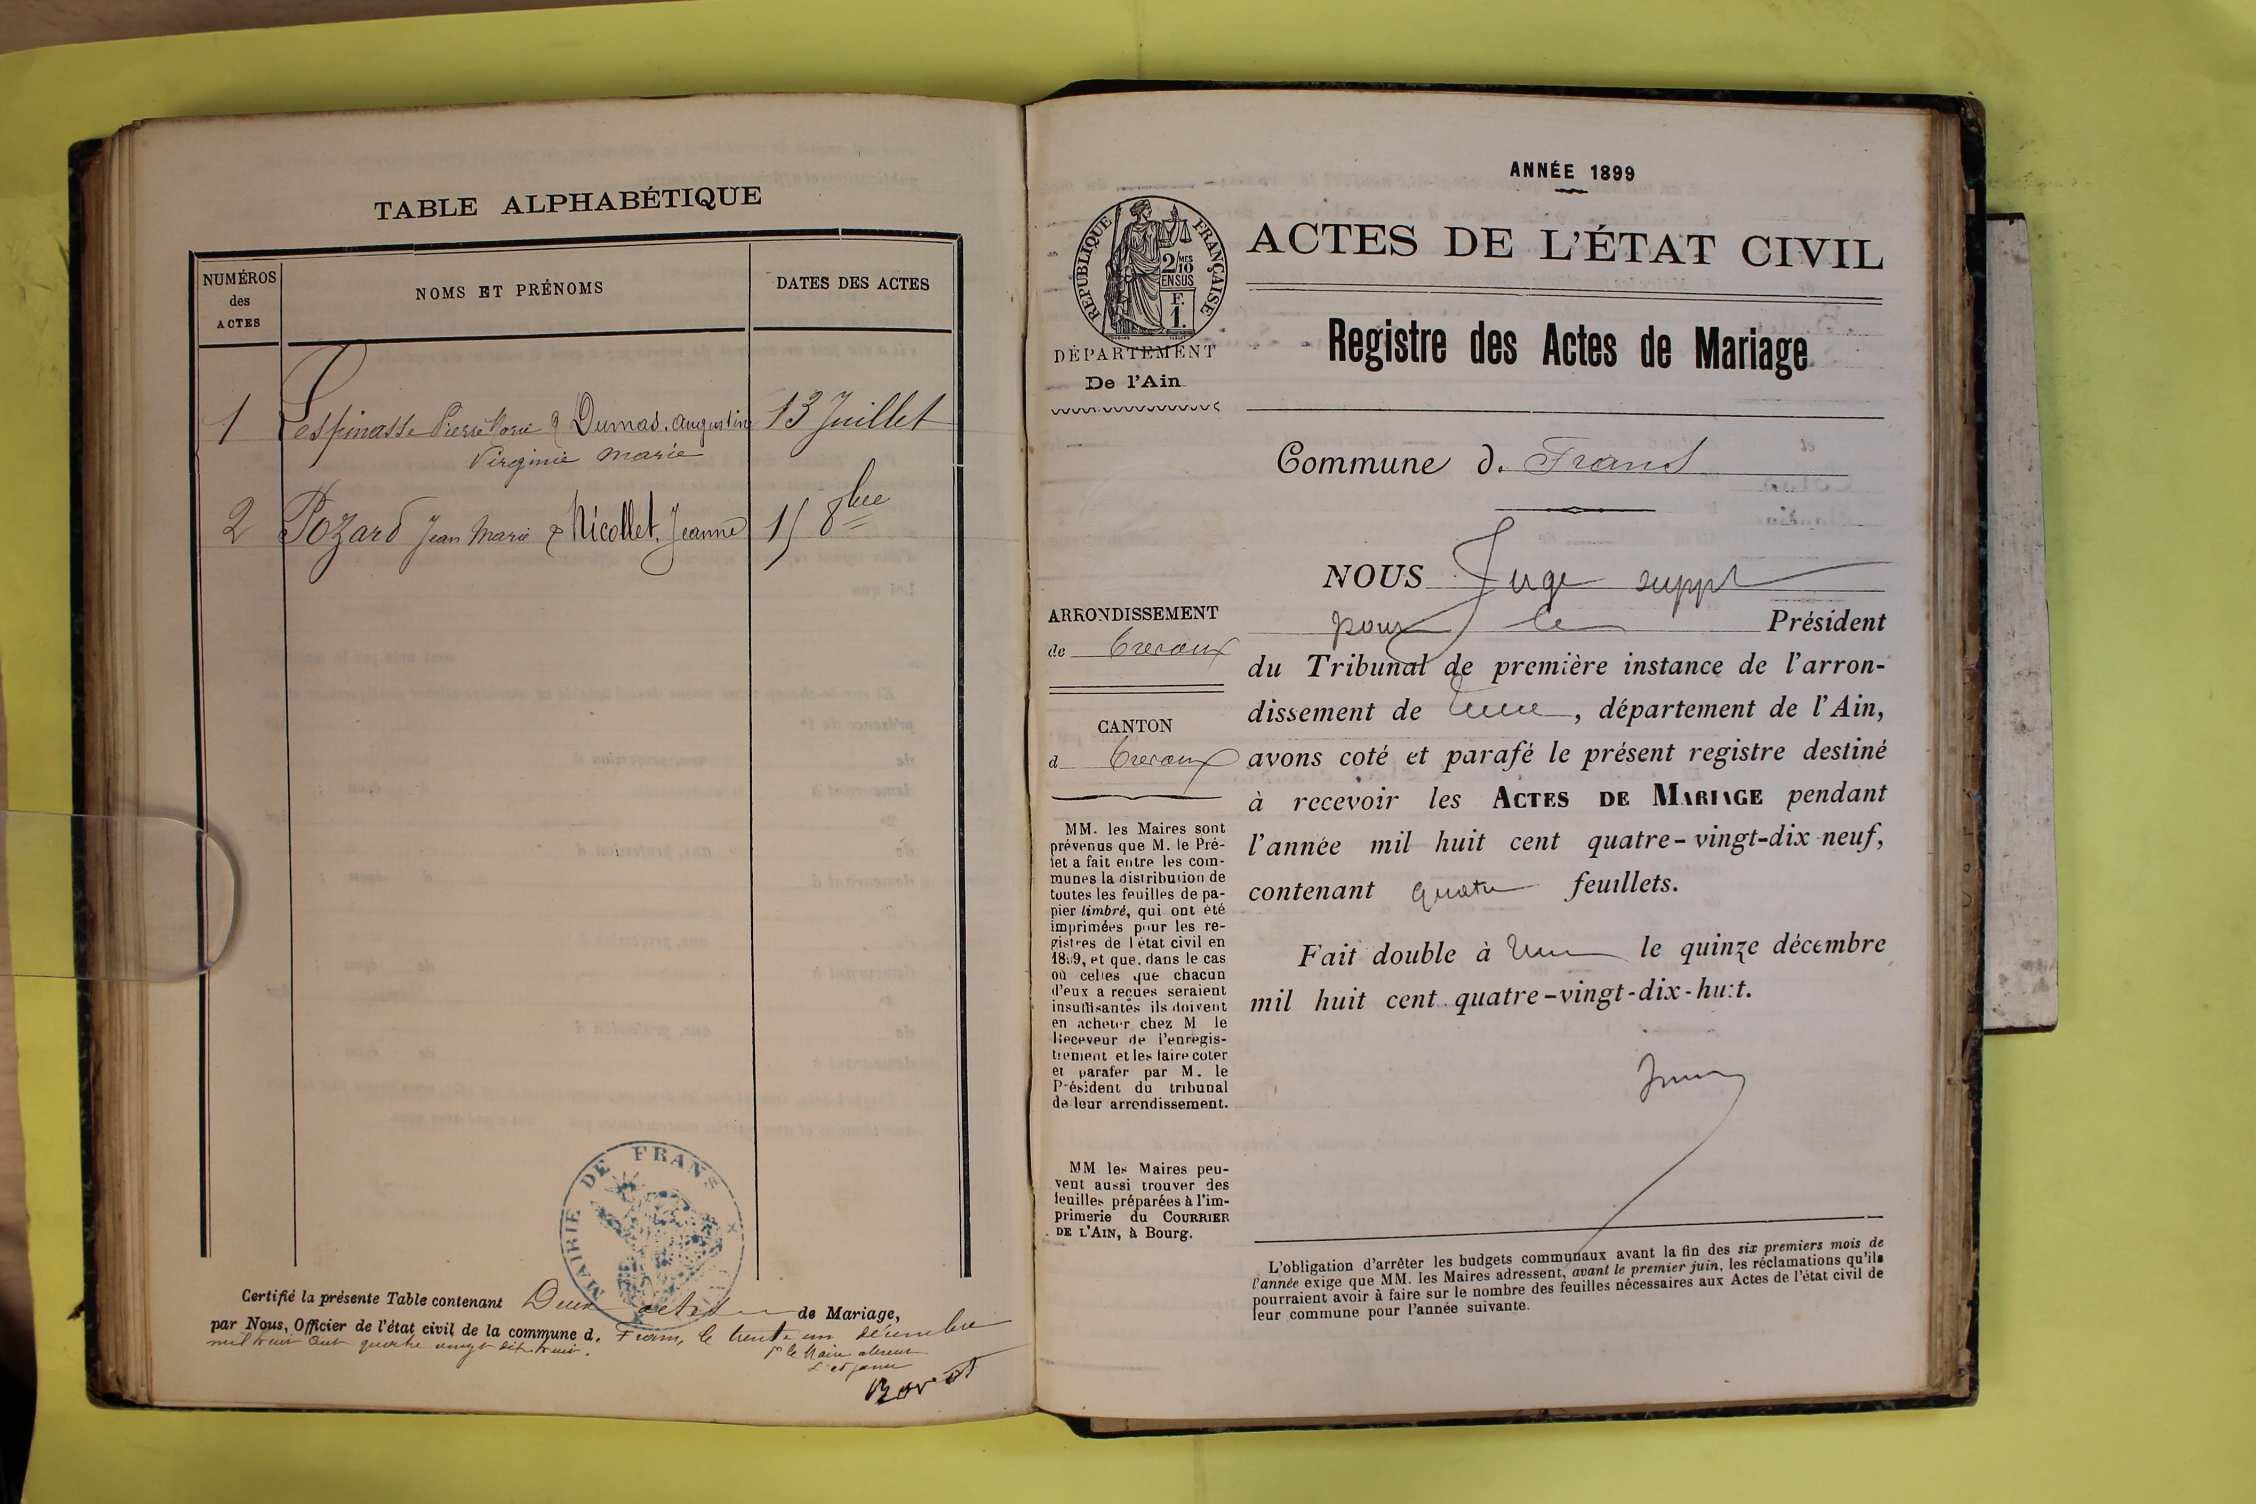 TABLE ALPHABÉTIQUE
NUMÉROS
des
ACTES
NOMS ET PRÉNOMS
DATES DES ACTES
1 Lespinasse Pierre Marie & Dumas Augustine 13 Juillet
Virginie Marie
2 Pozard Jean Marie & Nicollet Jeanne 15 8bre
MAIRIE DE FRANS
Certifié la présente Table contenant Deux actes de Mariage,
par Nous, Officier de l'état civil de la commune d. Frans, le trente un décembre
mil huit cent quatre vingt dix huit.
pr le Maire absent
L'adjoint
ANNÉE 1899
RÉPUBLIQUE FRANÇAISE
2/10 MES
EN SUS
F.
1.
ACTES DE L'ÉTAT CIVIL
DÉPARTEMENT
De l'Ain
Registre des Actes de Mariage
Commune d. Frans
ARRONDISSEMENT
de Trevoux
CANTON
d Trevoux
MM. les Maires sont
prévenus que M. le Pré-
fet a fait entre les com-
munes la distribution de
toutes les feuilles de pa-
pier timbré, qui ont été
imprimées pour les re-
gistres de l'état civil en
1899, et que, dans le cas
où celles que chacun
d'eux a reçues seraient
insuffisantes ils doivent
en acheter chez M le
Receveur de l'enregis-
trement et les faire coter
et parafer par M. le
Président du tribunal
de leur arrondissement.
MM les Maires peu-
vent aussi trouver des
feuilles préparées à l'im-
primerie du COURRIER
DE L'AIN, à Bourg.
NOUS Juge suppt
pour le Président
du Tribunal de première instance de l'arron-
dissement de Trevoux, département de l'Ain,
avons coté et parafé le présent registre destiné
à recevoir les ACTES DE MARIAGE pendant
l'année mil huit cent quatre-vingt-dix neuf,
contenant quatre feuillets.
Fait double à Trevoux le quinze décembre
mil huit cent quatre-vingt-dix-huit.
L'obligation d'arrêter les budgets communaux avant la fin des six premiers mois de
l'année exige que MM. les Maires adressent, avant le premier juin, les réclamations qu'ils
pourraient avoir à faire sur le nombre des feuilles nécessaires aux Actes de l'état civil de
leur commune pour l'année suivante.